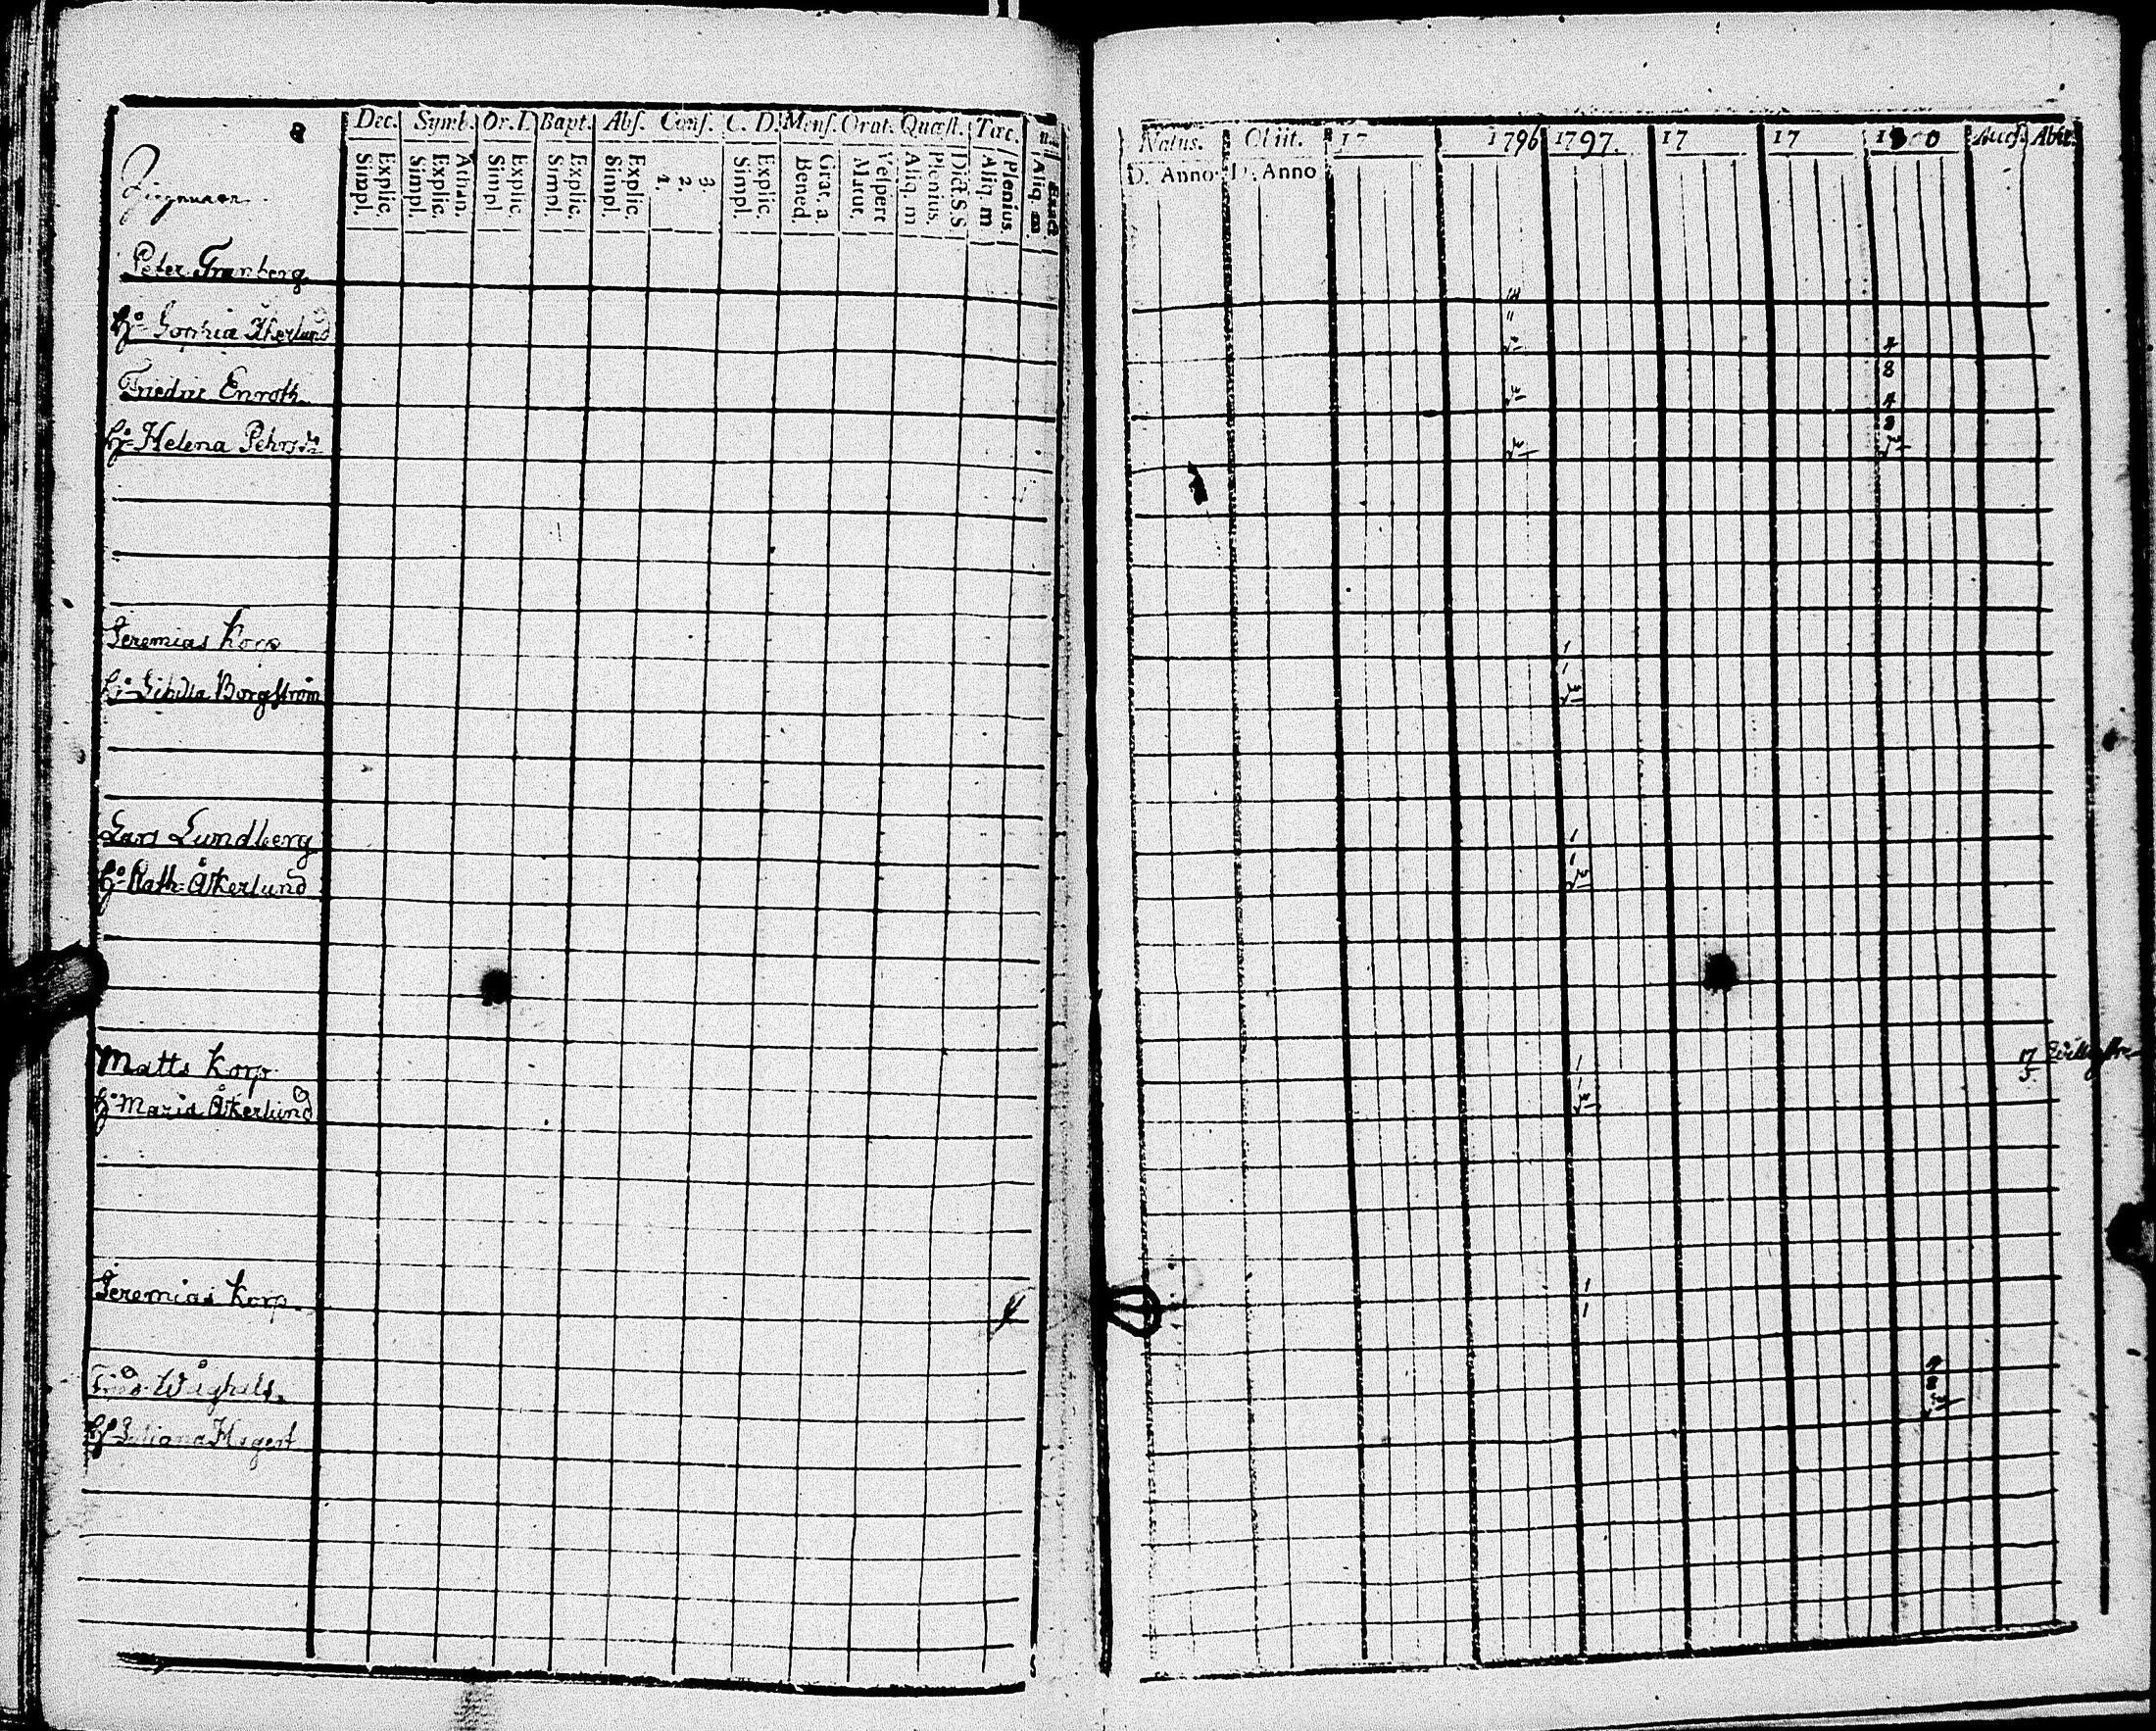 Dec. Symb. Or. D. Bapt. Abs. Conf. C. D. Mens. Orat. Quæst. Tac.
Explic. Simpl. Athan. Explic. Simpl. Explic. Simpl. Explic. Simpl. Explic. Simpl. 3. 2. 1. Explic. Simpl. Grat. a. Bened. Vespert Matut. Dict. S. S Plenius. Aliq. m Plenius. Aliq. m Exact. Aliq. m
Natus. Obiit. 17 1796 1797. 17 17 1800 Acces. Abit.
D. Anno D. Anno
Peter Granberg
Hu Sophia Åkerlund
4
8
Friedric Enroth
4
8
Hu Helena Pehrsdr
Jeremias Korp
1
1
Hu Sibilla Borgström
Lars Lundberg
1
1
Hu Kath. Åkerlund
Matts Korp
1
17
5
1
Hu Maria Åkerlund
Jeremias Korp
1
1
Hu Juliana